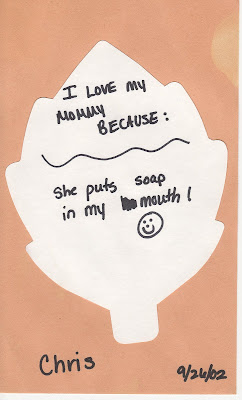 I LOVE my
MOMMY
BECAUSE:
she puts soap
in my mouth!
Chris
9/26/02